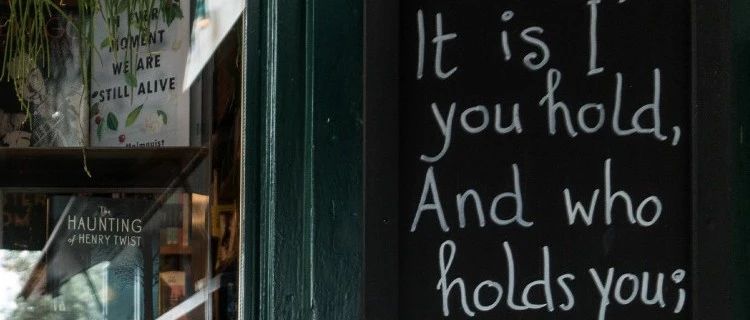 IN EVERY
MOMENT
WE ARE
STILL ALIVE
The
HAUNTING
of HENRY TWIST
It is I
you hold,
And who
holds you;